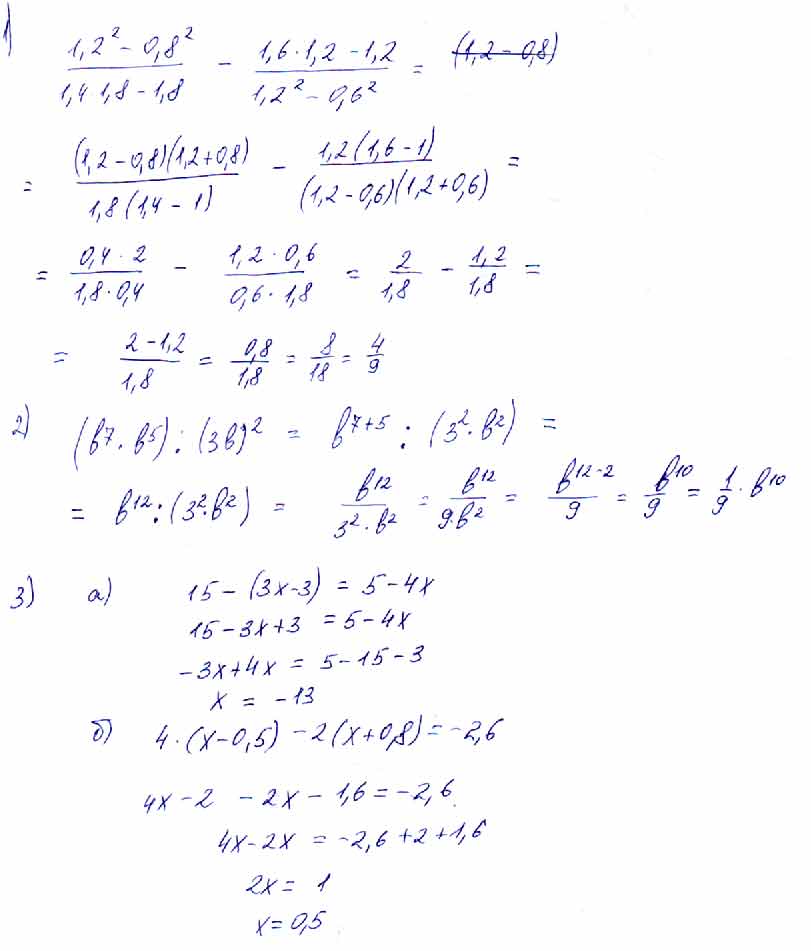 1) (1,2² - 0,8²)/(1,4 1,8 - 1,8) - (1,6·1,2 - 1,2)/(1,2² - 0,6²) = (1,2 - 0,8)
= ((1,2 - 0,8)(1,2 + 0,8))/(1,8(1,4 - 1)) - (1,2(1,6 - 1))/((1,2 - 0,6)(1,2 + 0,6)) =
= (0,4 · 2)/(1,8 · 0,4) - (1,2 · 0,6)/(0,6 · 1,8) = 2/1,8 - 1,2/1,8 =
= (2 - 1,2)/1,8 = 0,8/1,8 = 8/18 = 4/9
2) (b⁷ · b⁵) : (3b)² = b⁷⁺⁵ : (3² · b²) =
= b¹² : (3² · b²) = b¹²/(3² · b²) = b¹²/(9·b²) = b¹²⁻²/9 = b¹⁰/9 = 1/9 · b¹⁰
3) а) 15 - (3x - 3) = 5 - 4x
15 - 3x + 3 = 5 - 4x
-3x + 4x = 5 - 15 - 3
x = -13
б) 4·(x - 0,5) - 2(x + 0,8) = -2,6
4x - 2 - 2x - 1,6 = -2,6
4x - 2x = -2,6 + 2 + 1,6
2x = 1
x = 0,5